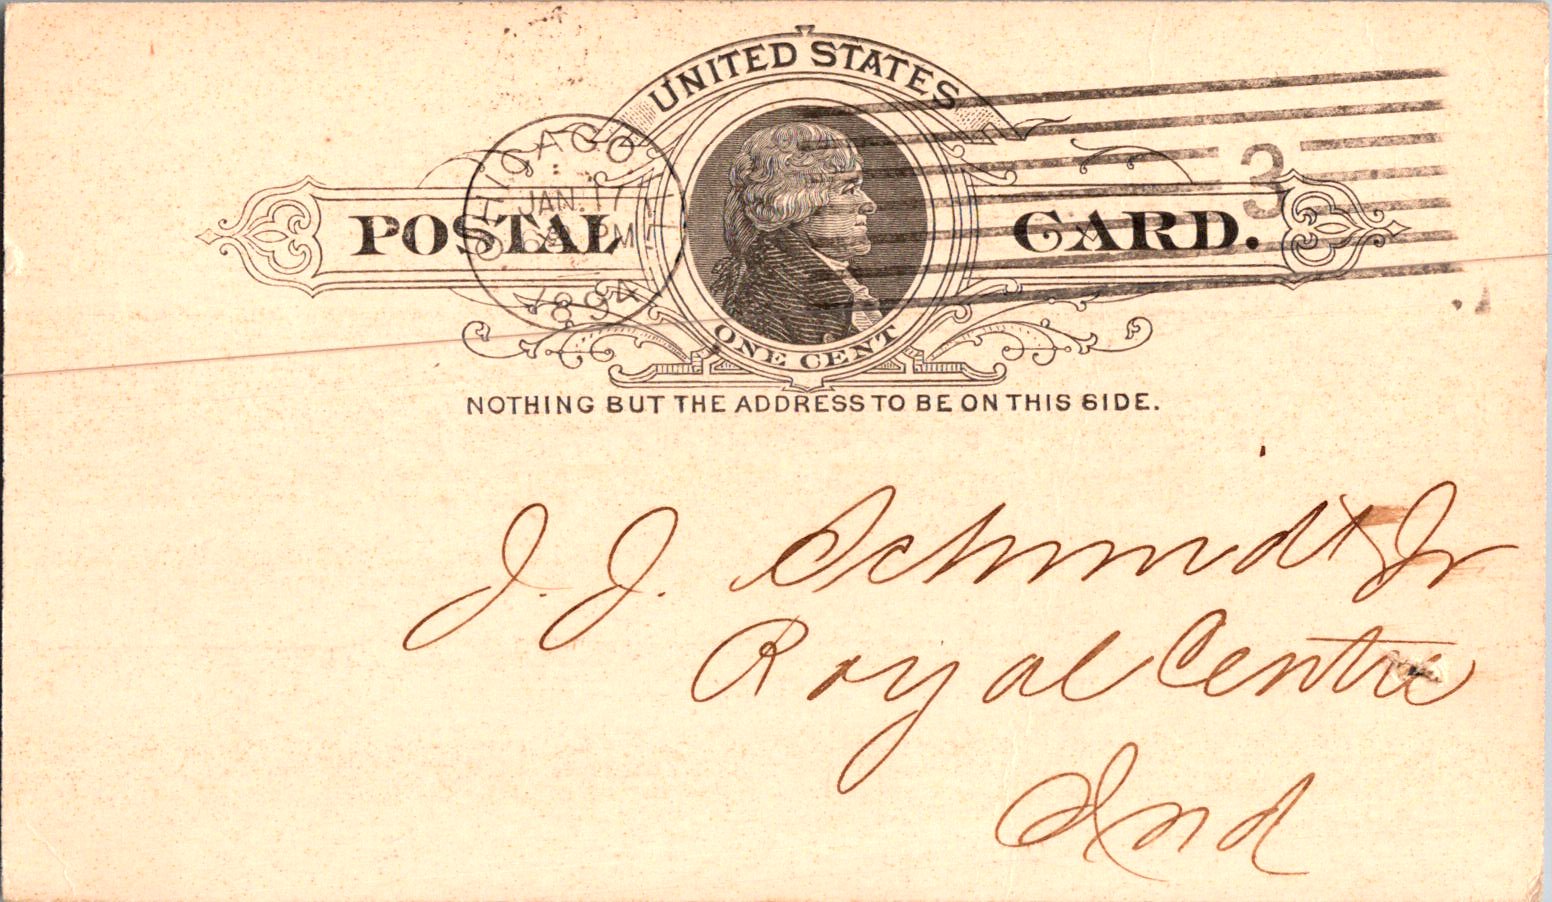 UNITED STATES
POSTAL CARD.
CHICAGO
JAN. 17
PM
1894
3
ONE CENT
NOTHING BUT THE ADDRESS TO BE ON THIS SIDE.
J. J. Schmidt Jr
Royal Centre
Ind